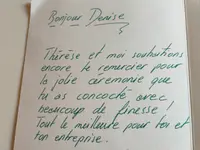 Bonjour Denise
Thérèse et moi souhaitions
encore te remercier pour
la jolie cérémonie que
tu as concocté avec
beaucoup de finesse !
Tout le meilleure pour toi et
ton entreprise.